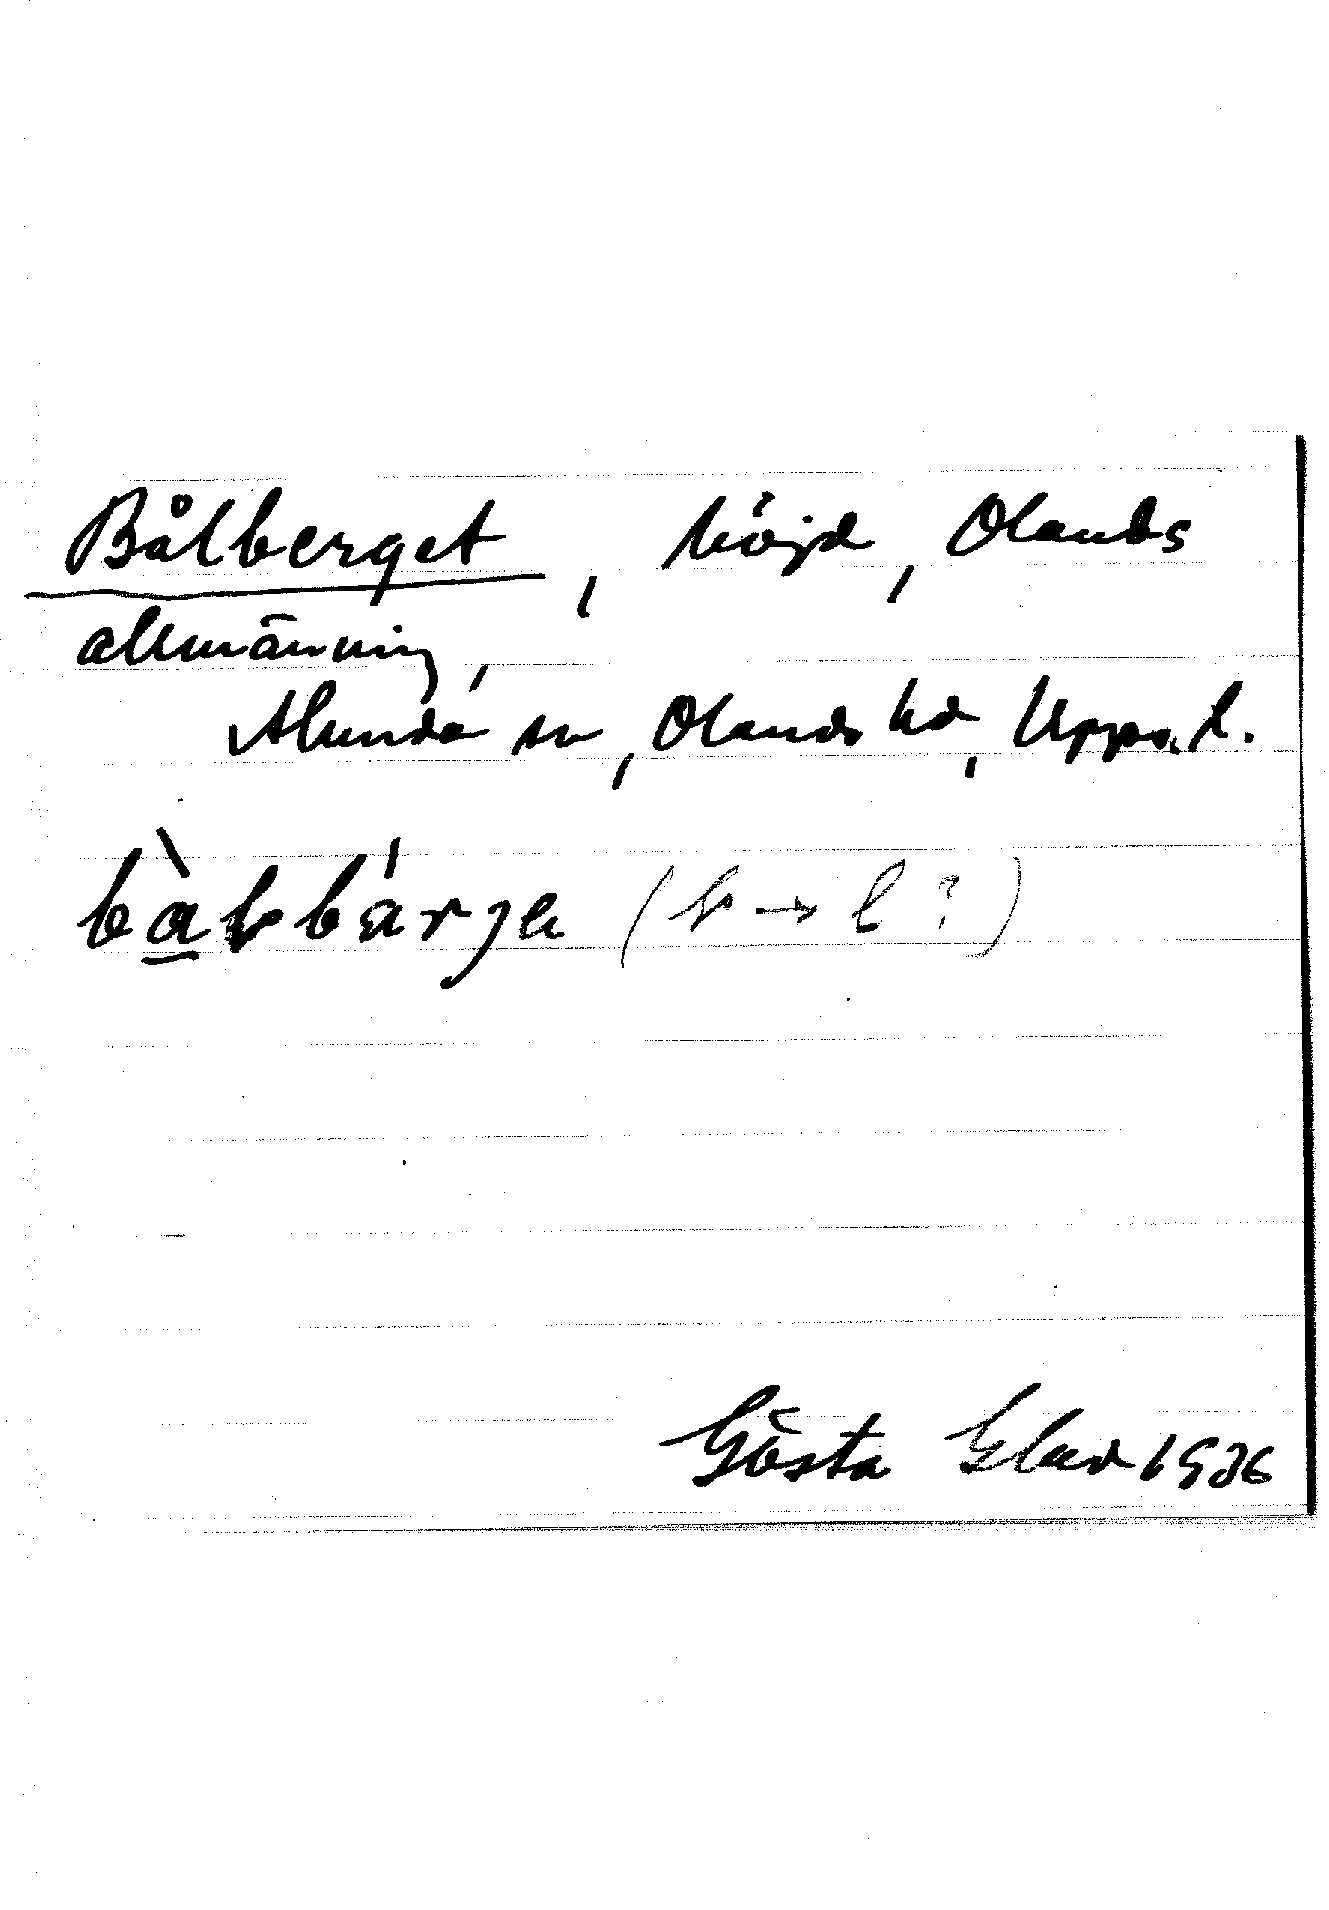 Bålberget, höjd, Olands
allmänning,
Alunda sn, Olands hd, Upps. l.
bàkbárja (k → l ?)
Gösta Elud 1936